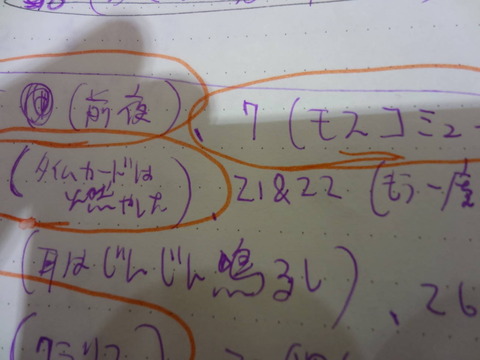 (前夜) 、 7 (モスコミュー
(タイムカードは 21&22 (もう一度
燃やした)
(耳はじんじん鳴るし) 、26